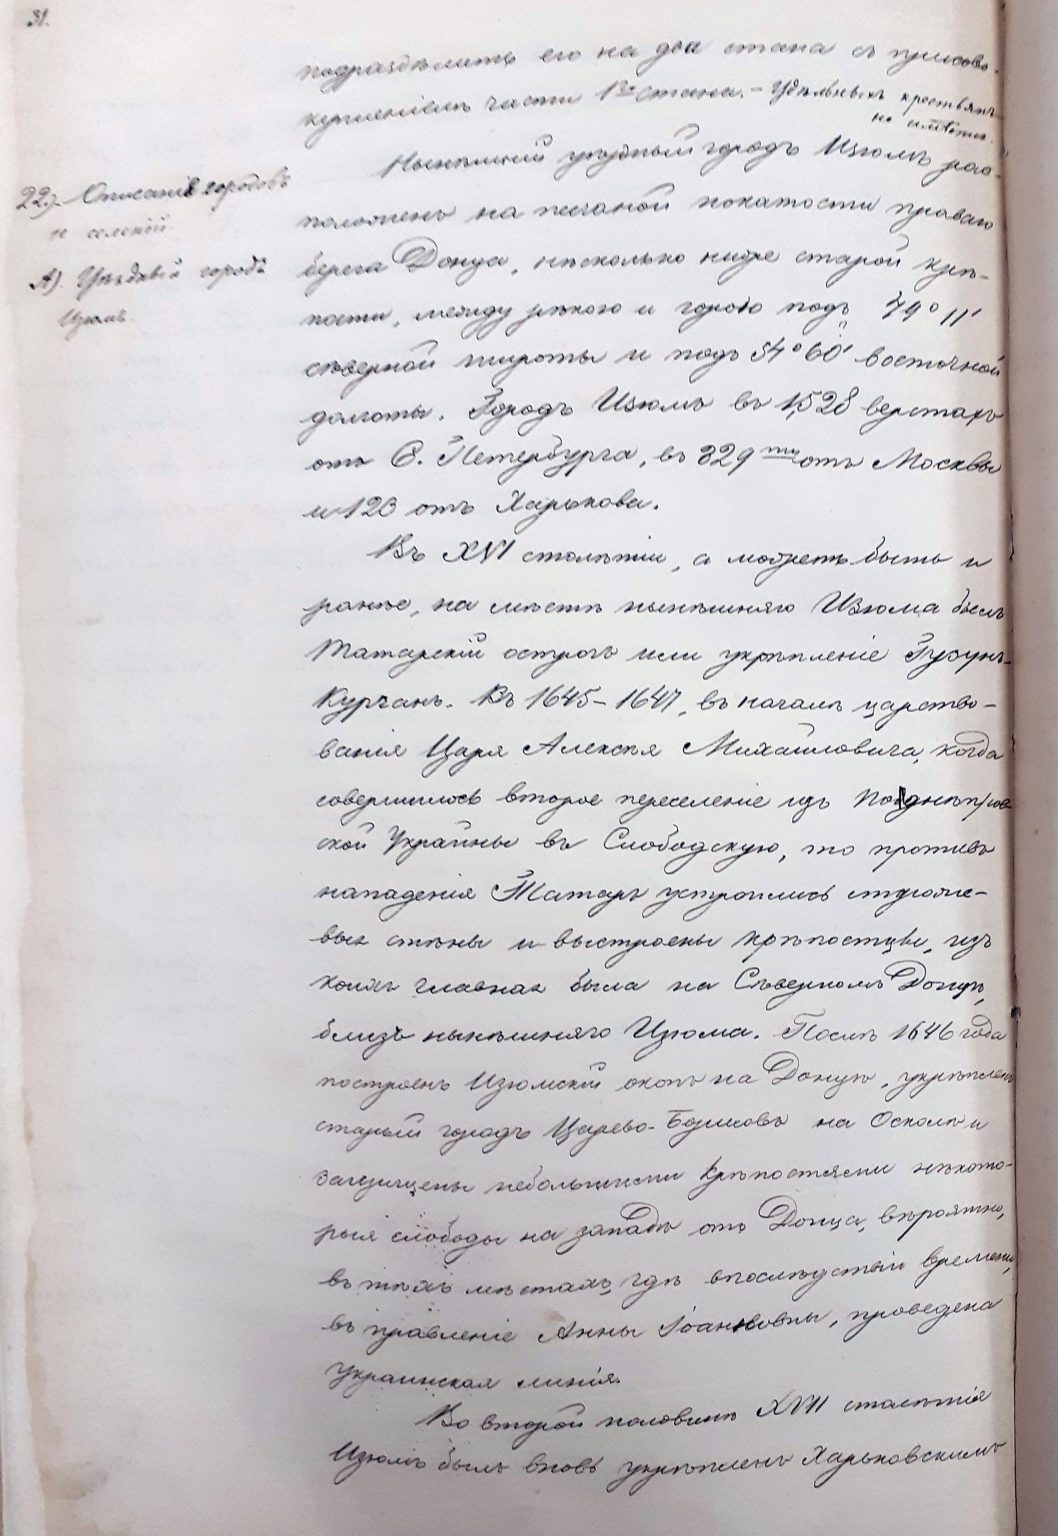 31.
подраздѣлить его на два стана съ присово-
купленіемъ части 1го стана. – Удѣльныхъ крестьянъ
не имѣется.
22). Описаніе городовъ
и селеній.
А). Уѣздный городъ
Изюмъ.
Нынѣшній уѣздный городъ Изюмъ рас-
положенъ на песчаной покатости праваго
берега Донца, нѣсколько ниже старой крѣ-
пости, между рѣкою и горою подъ 49° 11'
сѣверной широты и подъ 54° 60' восточной
долготы. Городъ Изюмъ въ 1,528 верстахъ
отъ С. Петербурга, въ 829ти отъ Москвы
и 120 отъ Харькова.
Въ XVI столѣтіи, а можетъ быть и
ранѣе, на мѣстѣ нынѣшняго Изюма былъ
Татарскій острогъ или укрѣпленіе Гузунъ-
Курганъ. Въ 1645–1647, въ началѣ царство-
ванія Царя Алексѣя Михайловича, когда
совершилось второе переселеніе изъ Поднѣпров-
ской Украйны въ Слободскую, то противъ
нападенія Татаръ устроились сторože-
выя стѣны и выстроены крѣпостцы, изъ
коихъ главная была на Сѣверномъ Донцѣ,
близъ нынѣшняго Изюма. Послѣ 1646 года
построенъ Изюмскій окопъ на Донцѣ, укрѣпленъ
старый городъ Царево-Борисовъ на Осколѣ и
защищены небольшими крѣпостями нѣкото-
рыя слободы на западъ отъ Донца, вѣроятно,
въ тѣхъ мѣстахъ, гдѣ впослѣдствіи времени,
въ правленіе Анны Іоанновны, проведена
Украинская линія.
Во второй половинѣ XVII столѣтія
Изюмъ былъ вновь укрѣпленъ Харьковскимъ